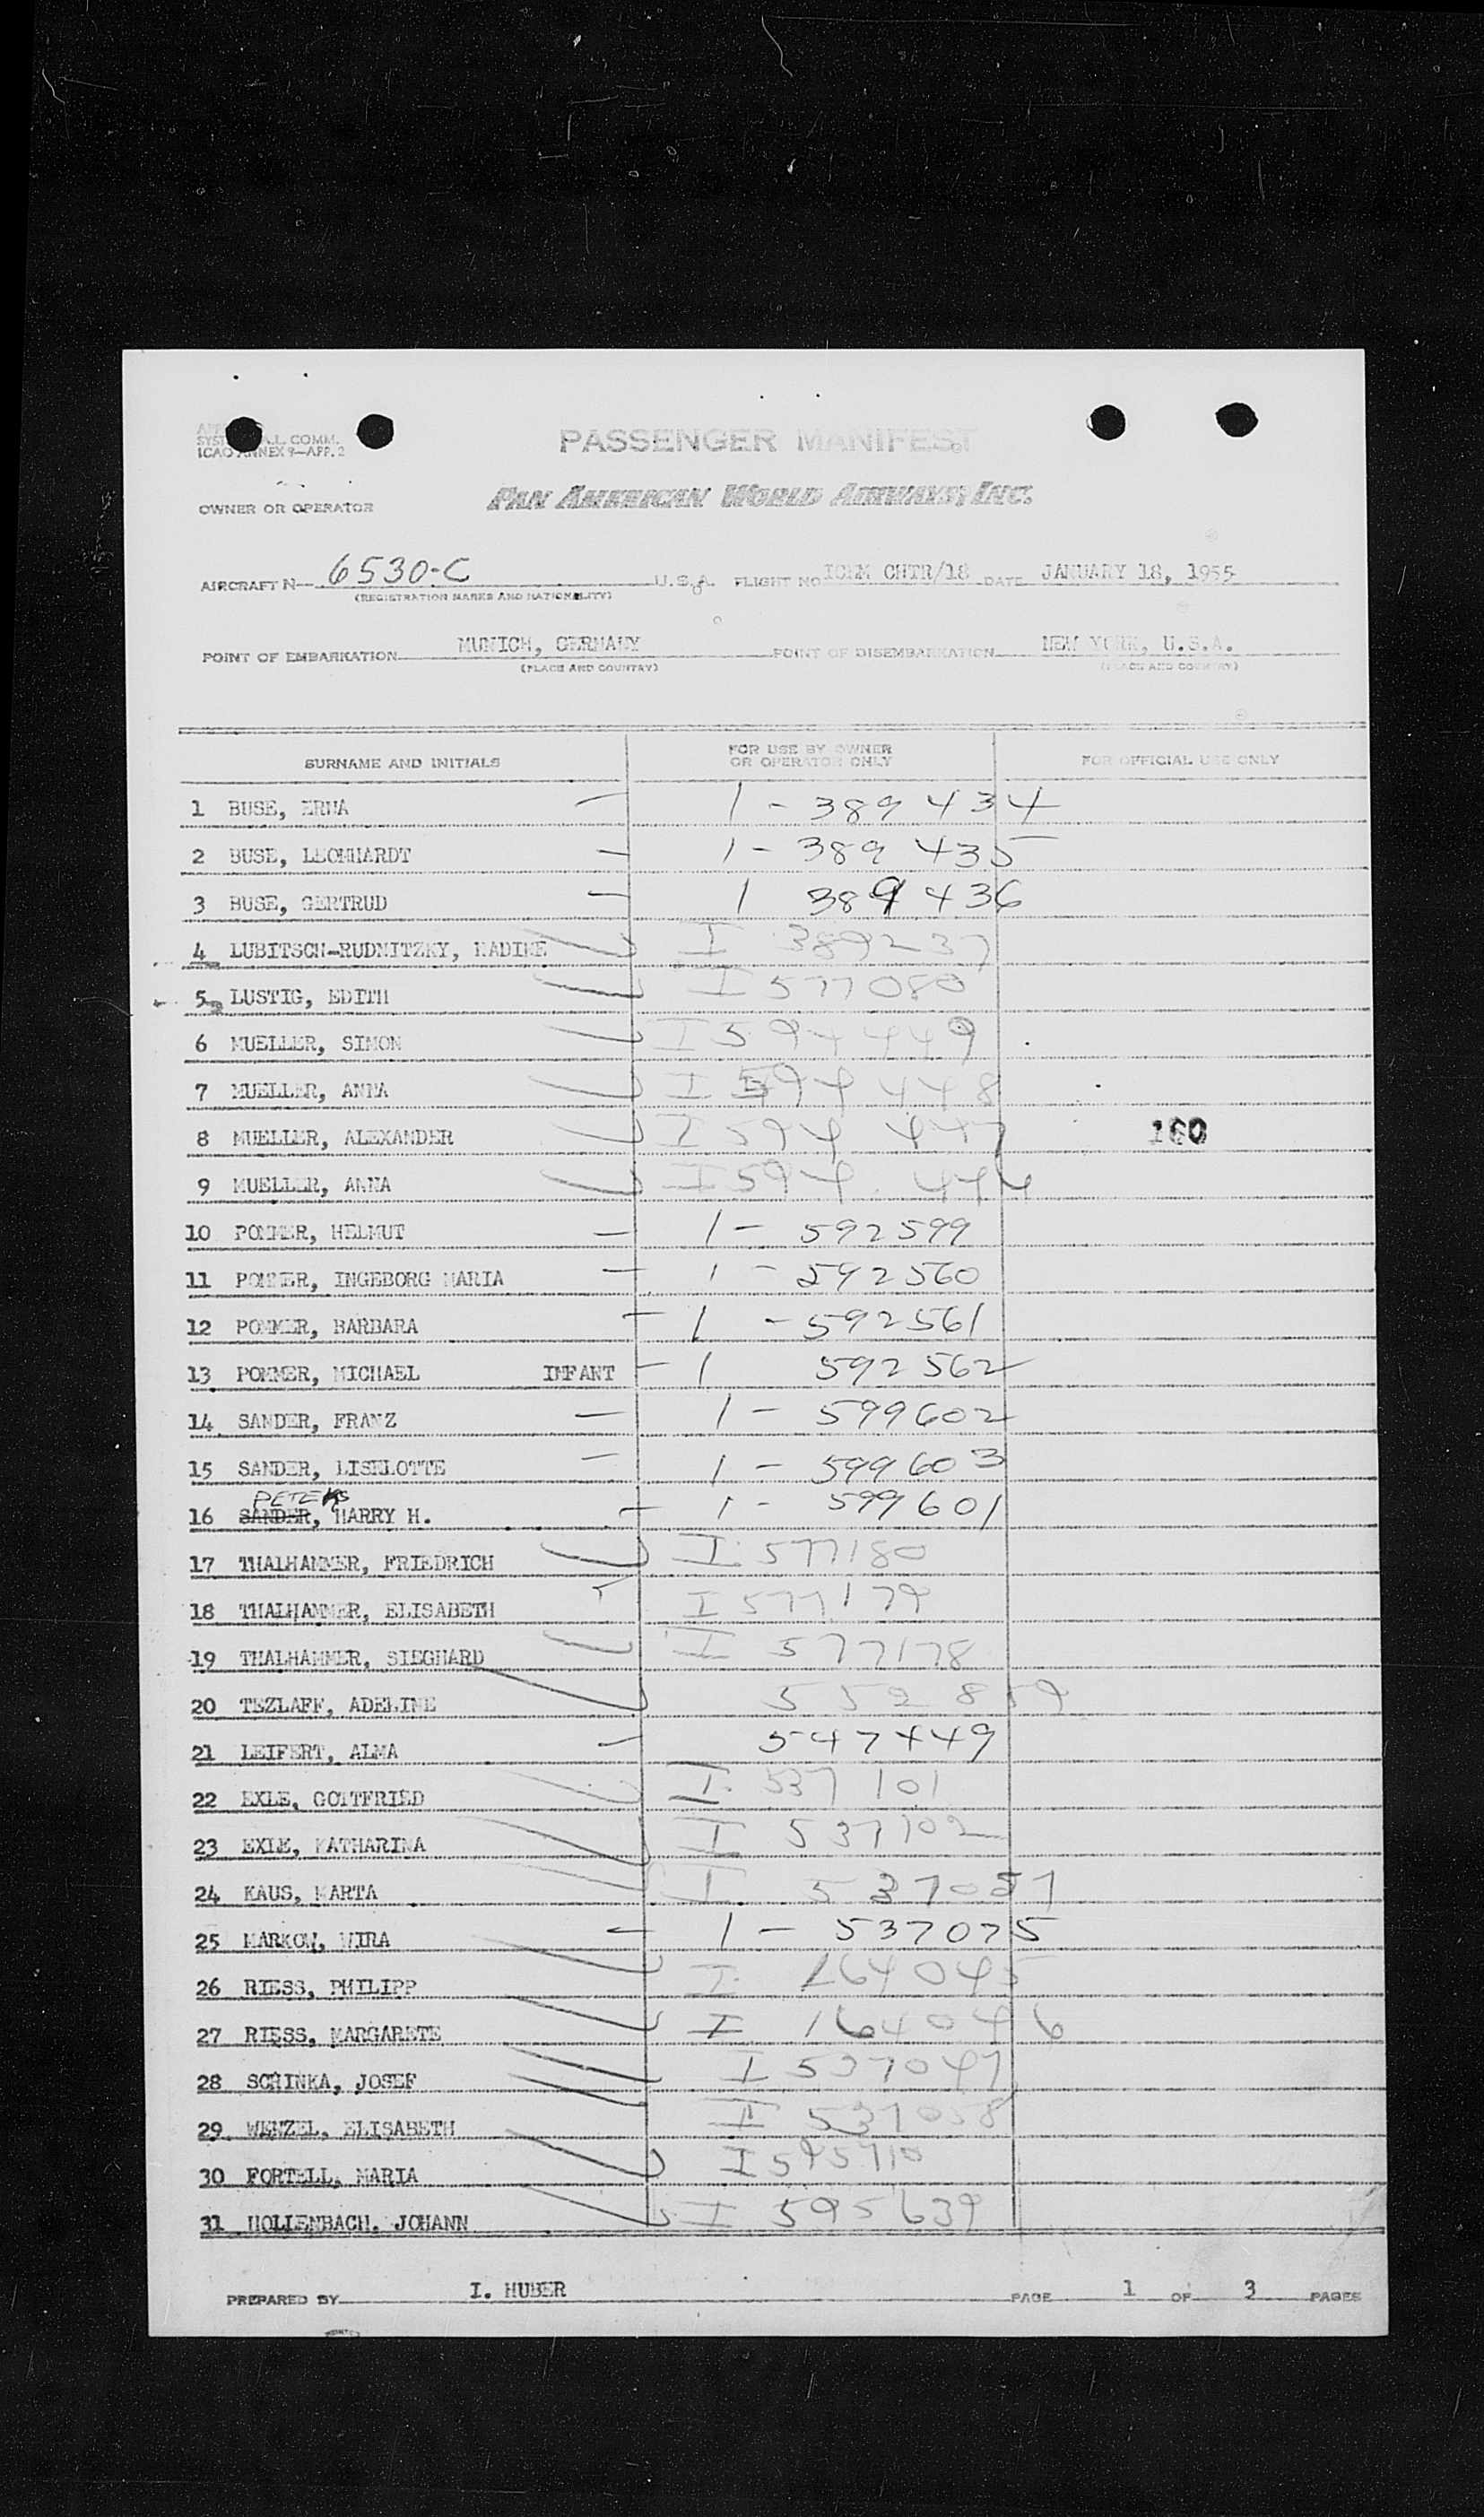 A.L. COMM.
ICAO ANNEX 9—APP. 2
PASSENGER MANIFEST
OWNER OR OPERATOR
PAN AMERICAN WORLD AIRWAYS, INC.
AIRCRAFT N— 6530-C U.S.A. FLIGHT NO. ICEM CHTR/18 DATE JANUARY 18, 1955
(REGISTRATION MARKS AND NATIONALITY)
POINT OF EMBARKATION MUNICH, GERMANY POINT OF DISEMBARKATION NEW YORK, U.S.A.
(PLACE AND COUNTRY) (PLACE AND COUNTRY)
SURNAME AND INITIALS FOR USE BY OWNER OR OPERATOR ONLY FOR OFFICIAL USE ONLY
1 BUSE, ERNA — 1 - 389434
2 BUSE, LEONHARDT — 1 - 389 435
3 BUSE, GERTRUD — 1 389 436
4 LUBITSCH-RUDNITZKY, NADINE I 389237
5 LUSTIG, EDITH I 577080
6 MUELLER, SIMON I 594449
7 MUELLER, ANNA I 594 448
8 MUELLER, ALEXANDER I 594 447 160
9 MUELLER, ANNA I 594 444
10 POMMER, HELMUT — 1 - 592599
11 POMMER, INGEBORG MARIA — 1 - 592560
12 POMMER, BARBARA — 1 - 592561
13 POMMER, MICHAEL INFANT — 1 592562
14 SANDER, FRANZ — 1 - 599602
15 SANDER, LISELOTTE — 1 - 599603
PETERS
16 SANDER, HARRY H. — 1 - 599601
17 THALHAMMER, FRIEDRICH I 577180
18 THALHAMMER, ELISABETH I 577179
19 THALHAMMER, SIEGHARD I 577178
20 TEZLAFF, ADELINE 552 859
21 LEIFERT, ALMA — 547449
22 EXLE, GOTTFRIED I 537 101
23 EXLE, KATHARINA I 537102
24 KAUS, MARTA I 537057
25 MARKOW, MIRA — 1 - 537075
26 RIESS, PHILIPP I 164045
27 RIESS, MARGARETE I 164046
28 SCHINKA, JOSEF I 537047
29 WENZEL, ELISABETH I 537058
30 FORTELL, MARIA I 595710
31 HOLLENBACH, JOHANN I 595639
PREPARED BY I. HUBER PAGE 1 OF 3 PAGES